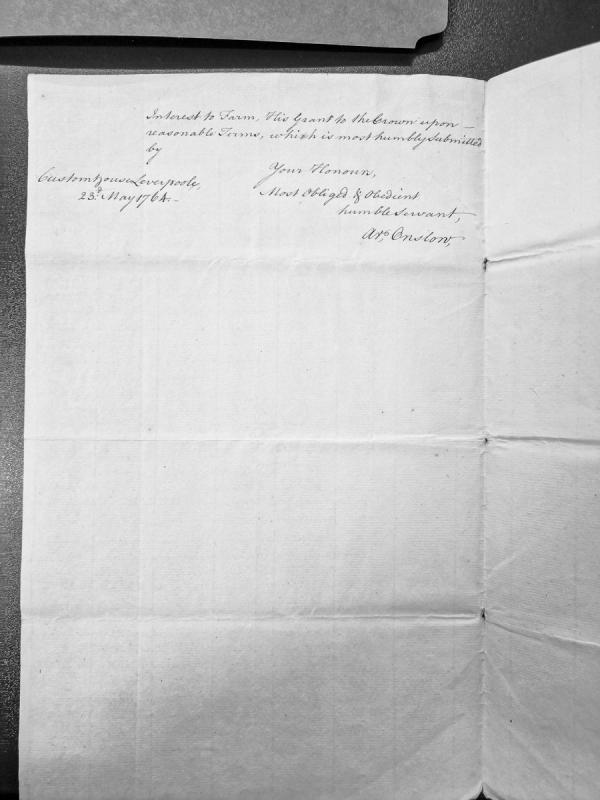 Interest to Farm, His Grant to the Crown upon —
reasonable Terms, which is most humbly Submitted
by
Your Honours,
Customhouse Leverpoole,
23d. May 1764.—
Most Obliged & Obedient
humble Servant,
Ars. Onslow,